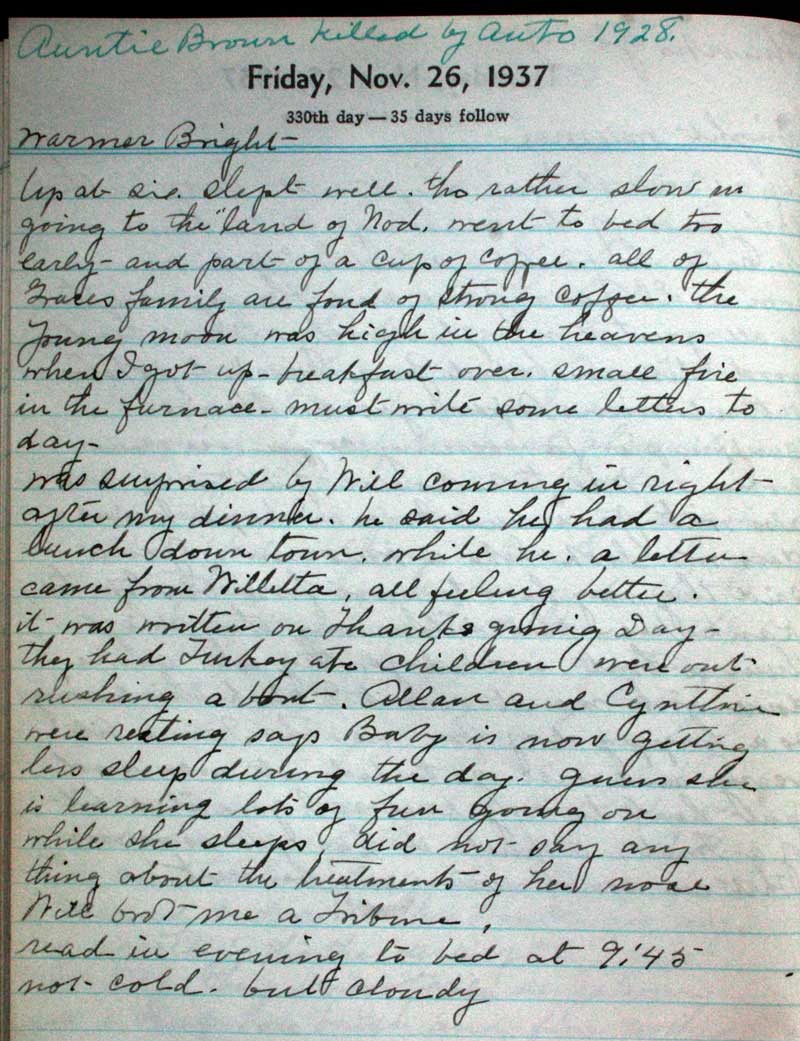 Auntie Brown killed by Auto 1928.
Friday, Nov. 26, 1937
330th day — 35 days follow
Warmer Bright-
Up at six. slept well. tho rather slow in
going to the "land of Nod. went to bed too
early- and part of a cup of coffee. all of
Graces family are fond of strong coffee. the
young moon was high in the heavens
when I got up- breakfast over. small fire
in the furnace- must write some letters to
day-
was surprised by Will coming in right-
after my dinner. he said he had a
lunch down town. while he. a letter
came from Willetta, all feeling better.
it- was written on Thanksgiving Day-
they had Turkey children were out
rushing a bout. Allan and Cynthia
were resting says Baby is now getting
less sleep during the day. guess she
is learning lots of fun going on
while she sleeps, did not say any
thing about the treatments of her nose
Will brot me a Tribune,
read in evening to bed at 9:45
not- cold. but cloudy